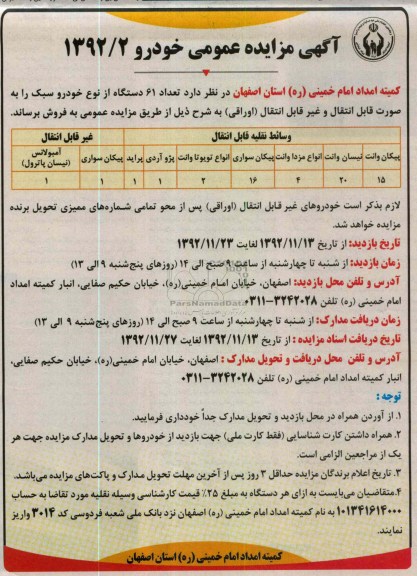 آگهی مزایده عمومی خودرو ۱۳۹۲/۲
کمیته امداد امام خمینی (ره) استان اصفهان در نظر دارد تعداد ۶۱ دستگاه از نوع خودرو سبک را به
صورت قابل انتقال و غیر قابل انتقال (اوراقی) به شرح ذیل از طریق مزایده عمومی به فروش برساند.
وسائط نقلیه قابل انتقال غیر قابل انتقال
پیکان وانت نیسان وانت انواع مزدا وانت پیکان سواری انواع تویوتا وانت پژو آردی پراید پیکان سواری آمبولانس (نیسان پاترول)
۱۵ ۲۰ ۴ ۱۶ ۲ ۱ ۱ ۱ ۱
لازم بذکر است خودروهای غیر قابل انتقال (اوراقی) پس از محو تمامی شماره‌های ممیزی تحویل برنده
مزایده خواهد شد.
تاریخ بازدید: از تاریخ ۱۳۹۲/۱۱/۱۳ لغایت ۱۳۹۲/۱۱/۲۳
زمان بازدید: از شنبه تا چهارشنبه از ساعت ۹ صبح الی ۱۴ (روزهای پنج‌شنبه ۹ الی ۱۳)
آدرس و تلفن محل بازدید: اصفهان، خیابان امام خمینی (ره)، خیابان حکیم صفایی، انبار کمیته امداد
امام خمینی (ره) تلفن ۳۲۴۲۰۲۸-۰۳۱۱
زمان دریافت مدارک: از شنبه تا چهارشنبه از ساعت ۹ صبح الی ۱۴ (روزهای پنج‌شنبه ۹ الی ۱۳)
تاریخ دریافت اسناد مزایده : از تاریخ ۱۳۹۲/۱۱/۱۳ لغایت ۱۳۹۲/۱۱/۲۷
آدرس و تلفن محل دریافت و تحویل مدارک : اصفهان، خیابان امام خمینی(ره)، خیابان حکیم صفایی،
انبار کمیته امداد امام خمینی (ره) تلفن ۳۲۴۲۰۲۸-۰۳۱۱
توجه :
۱. از آوردن همراه در محل بازدید و تحویل مدارک جداً خودداری فرمایید.
۲. همراه داشتن کارت شناسایی (فقط کارت ملی) جهت بازدید از خودروها و تحویل مدارک مزایده جهت هر
یک از مراجعین الزامی است.
۳. تاریخ اعلام برندگان مزایده حداقل ۲ روز پس از آخرین مهلت تحویل مدارک و پاکت‌های مزایده می‌باشد.
۴. متقاضیان می‌بایست به ازای هر دستگاه به مبلغ ۲۵٪ قیمت کارشناسی وسیله نقلیه مورد تقاضا به حساب
۱۰۱۳۴۱۶۱۴۰۰۰ به نام کمیته امداد امام خمینی (ره) اصفهان نزد بانک ملی شعبه فردوسی کد ۳۰۱۴ واریز
نمایند.
کمیته امداد امام خمینی (ره) استان اصفهان